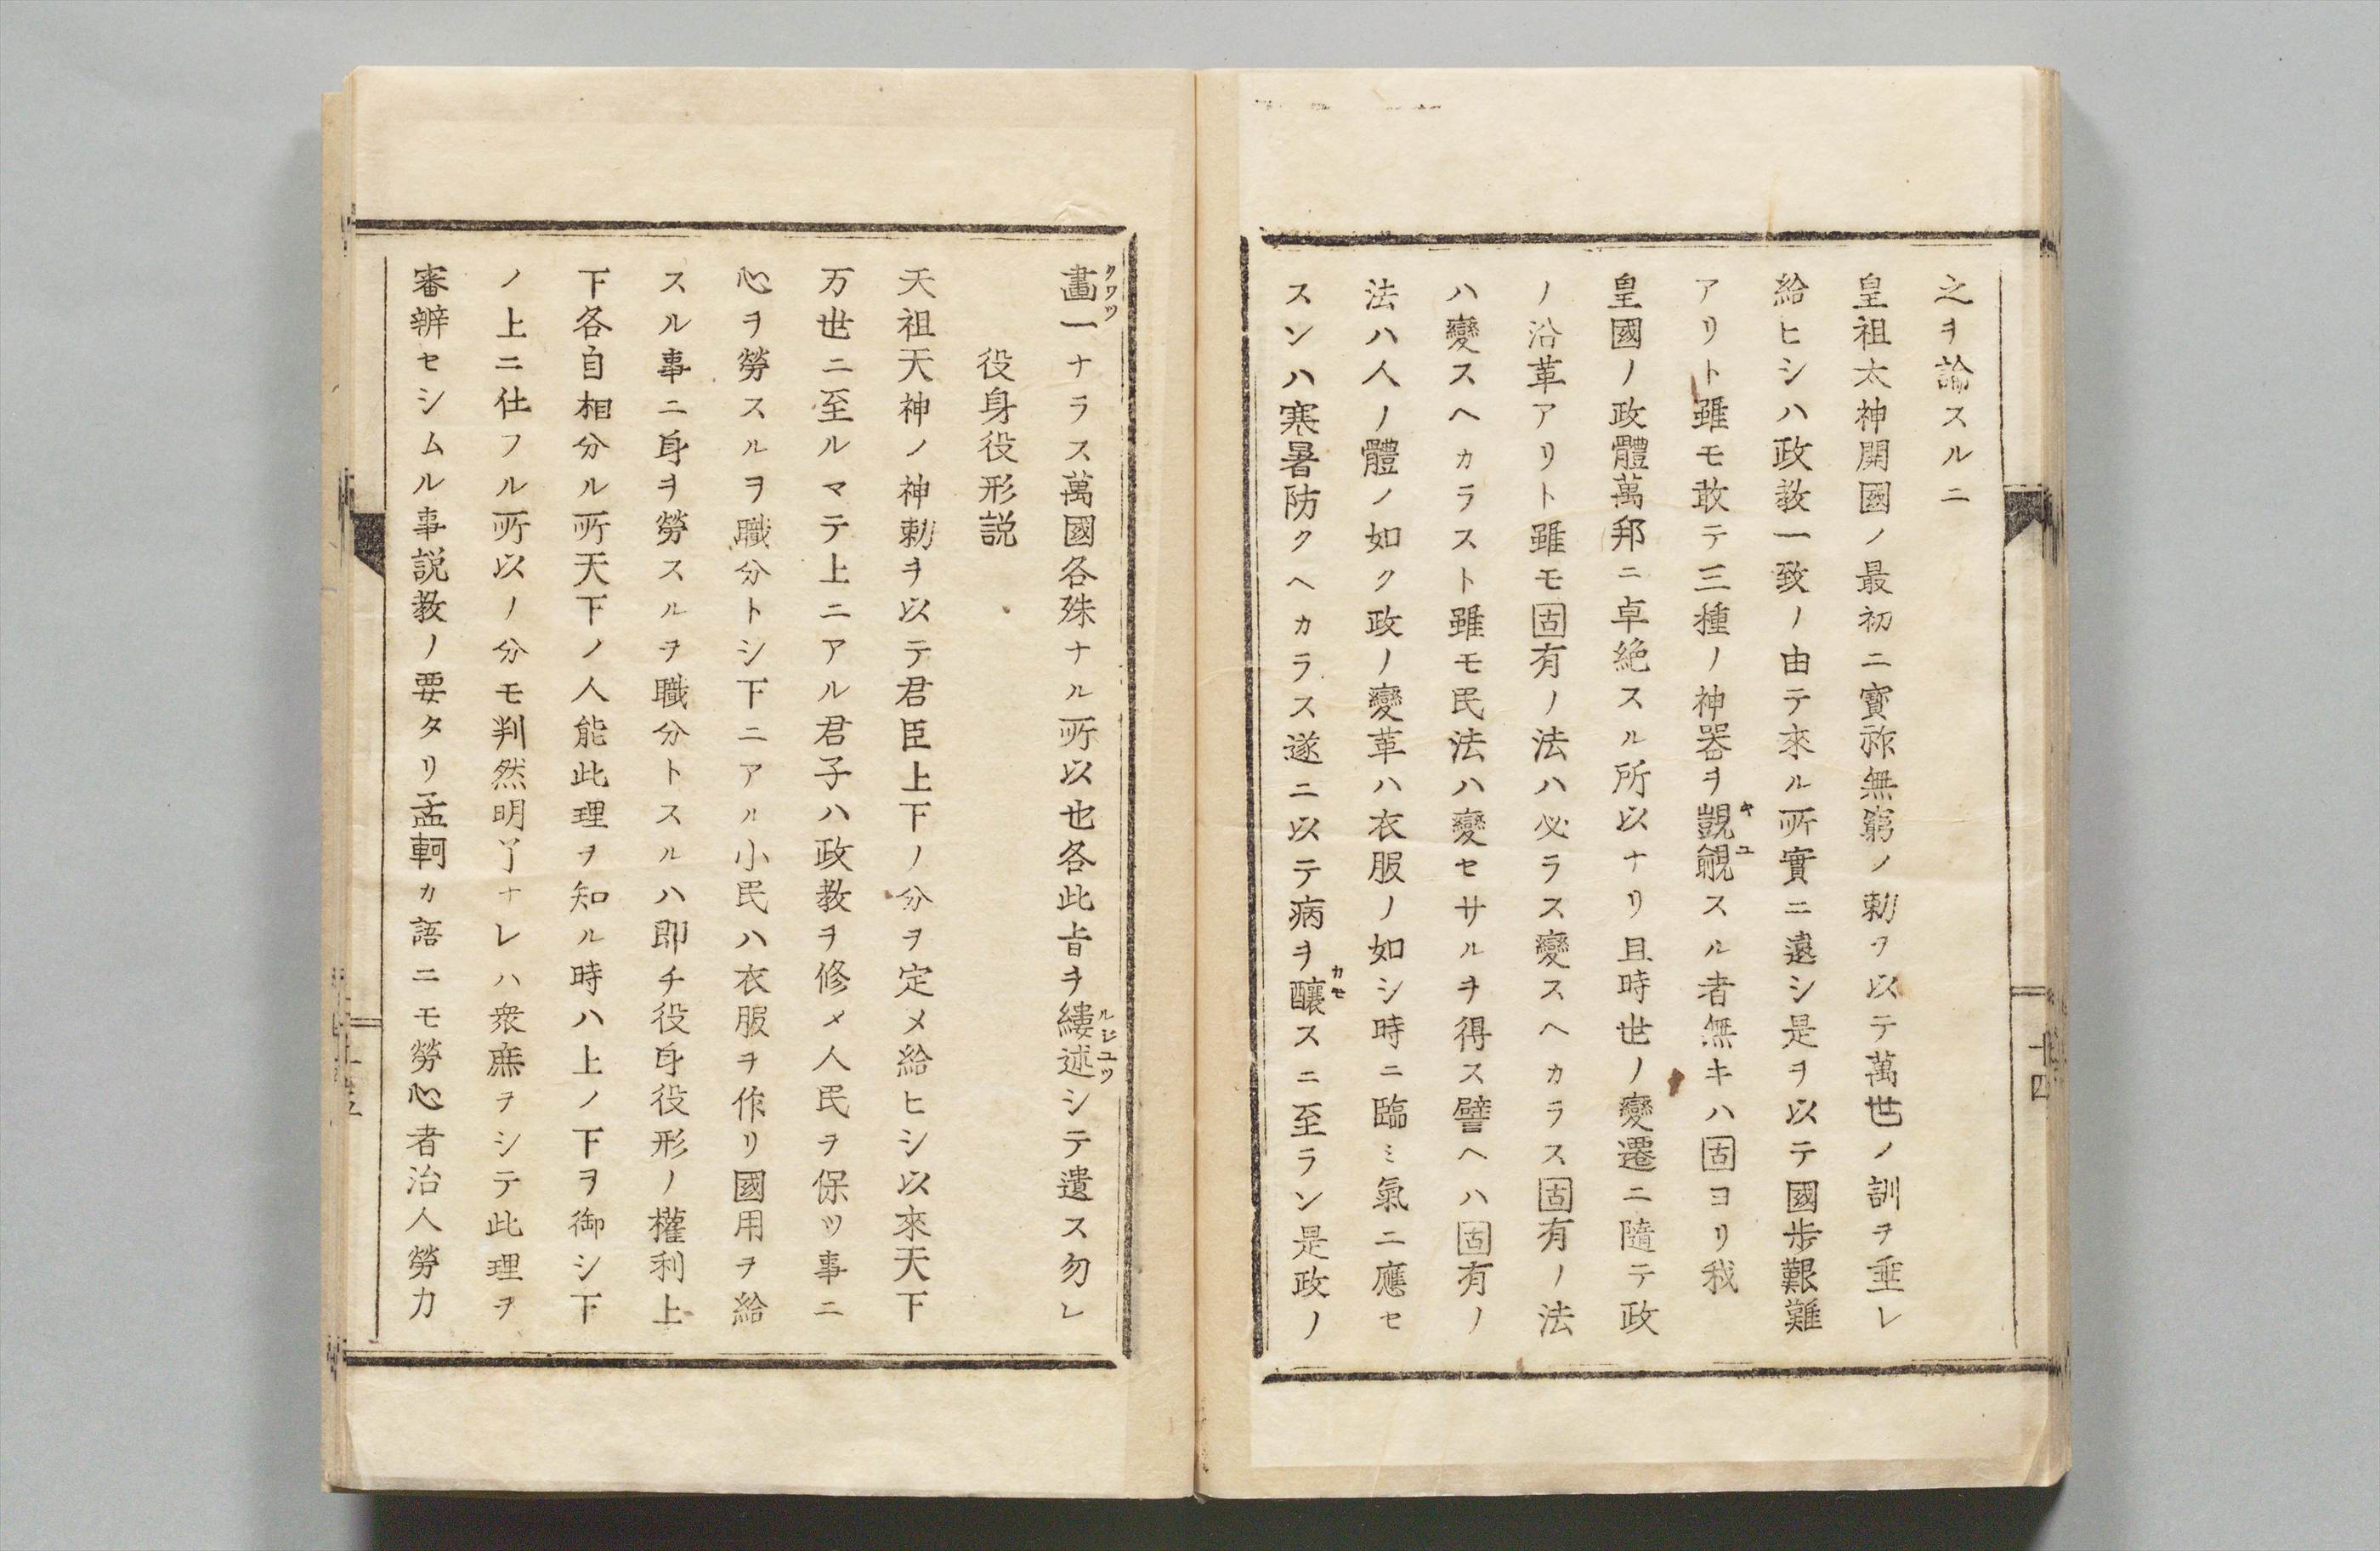 之ヲ論スルニ
皇祖太神開國ノ最初ニ寳祚無窮ノ勅ヲ以テ萬世ノ訓ヲ垂レ
給ヒシハ政教一致ノ由テ來ル所實ニ遠シ是ヲ以テ國歩艱難
アリト雖モ敢テ三種ノ神器ヲ覬覦スル者無キハ固ヨリ我
キユ
皇國ノ政體萬邦ニ卓絶スル所以ナリ且時世ノ變遷ニ隨テ政
ノ沿革アリト雖モ固有ノ法ハ必ラス變スヘカラス固有ノ法
ハ變スヘカラスト雖モ民法ハ變セサルヲ得ス譬ヘハ固有ノ
法ハ人ノ體ノ如ク政ノ變革ハ衣服ノ如シ時ニ臨ミ氣ニ應セ
スンハ寒暑防クヘカラス遂ニ以テ病ヲ釀スニ至ラン是政ノ
カモ
十四
畫一ナラス萬國各殊ナル所以也各此旨ヲ縷述シテ遺ス勿レ
クワツ
ルジユツ
役身役形説
天祖天神ノ神勅ヲ以テ君臣上下ノ分ヲ定メ給ヒシ以來天下
万世ニ至ルマテ上ニアル君子ハ政教ヲ修メ人民ヲ保ツ事ニ
心ヲ勞スルヲ職分トシ下ニアル小民ハ衣服ヲ作リ國用ヲ給
スル事ニ身ヲ勞スルヲ職分トスルハ即チ役身役形ノ權利上
下各自相分ル所天下ノ人能此理ヲ知ル時ハ上ノ下ヲ御シ下
ノ上ニ仕フル所以ノ分モ判然明了ナレハ衆庶ヲシテ此理ヲ
審辨セシムル事説教ノ要タリ孟軻カ語ニモ勞心者治人勞力